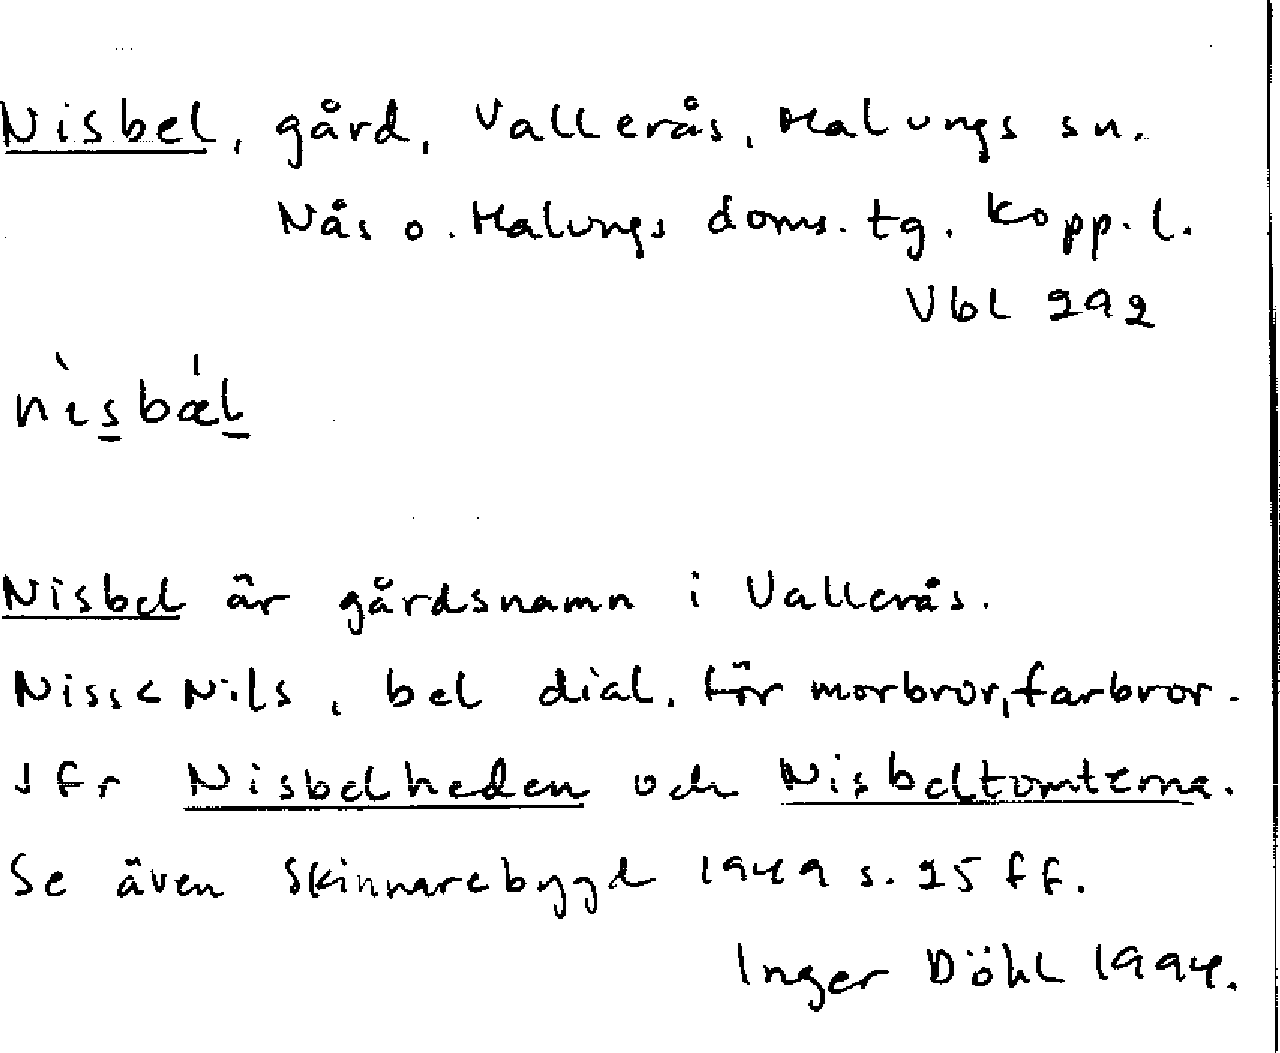 Nisbel, gård, Vallerås, Malungs sn.
Nås o. Malungs doms. tg. Kopp. l.
Vbl 292
nɩ̀sbæ̍l
Nisbel är gårdsnamn i Vallerås.
Niss < Nils, bel dial. för morbror, farbror.
Jfr Nisbelheden och Nisbeltomterna.
Se även Skinnarebygd 1949 s. 25 ff.
Inger Döhl 1994.